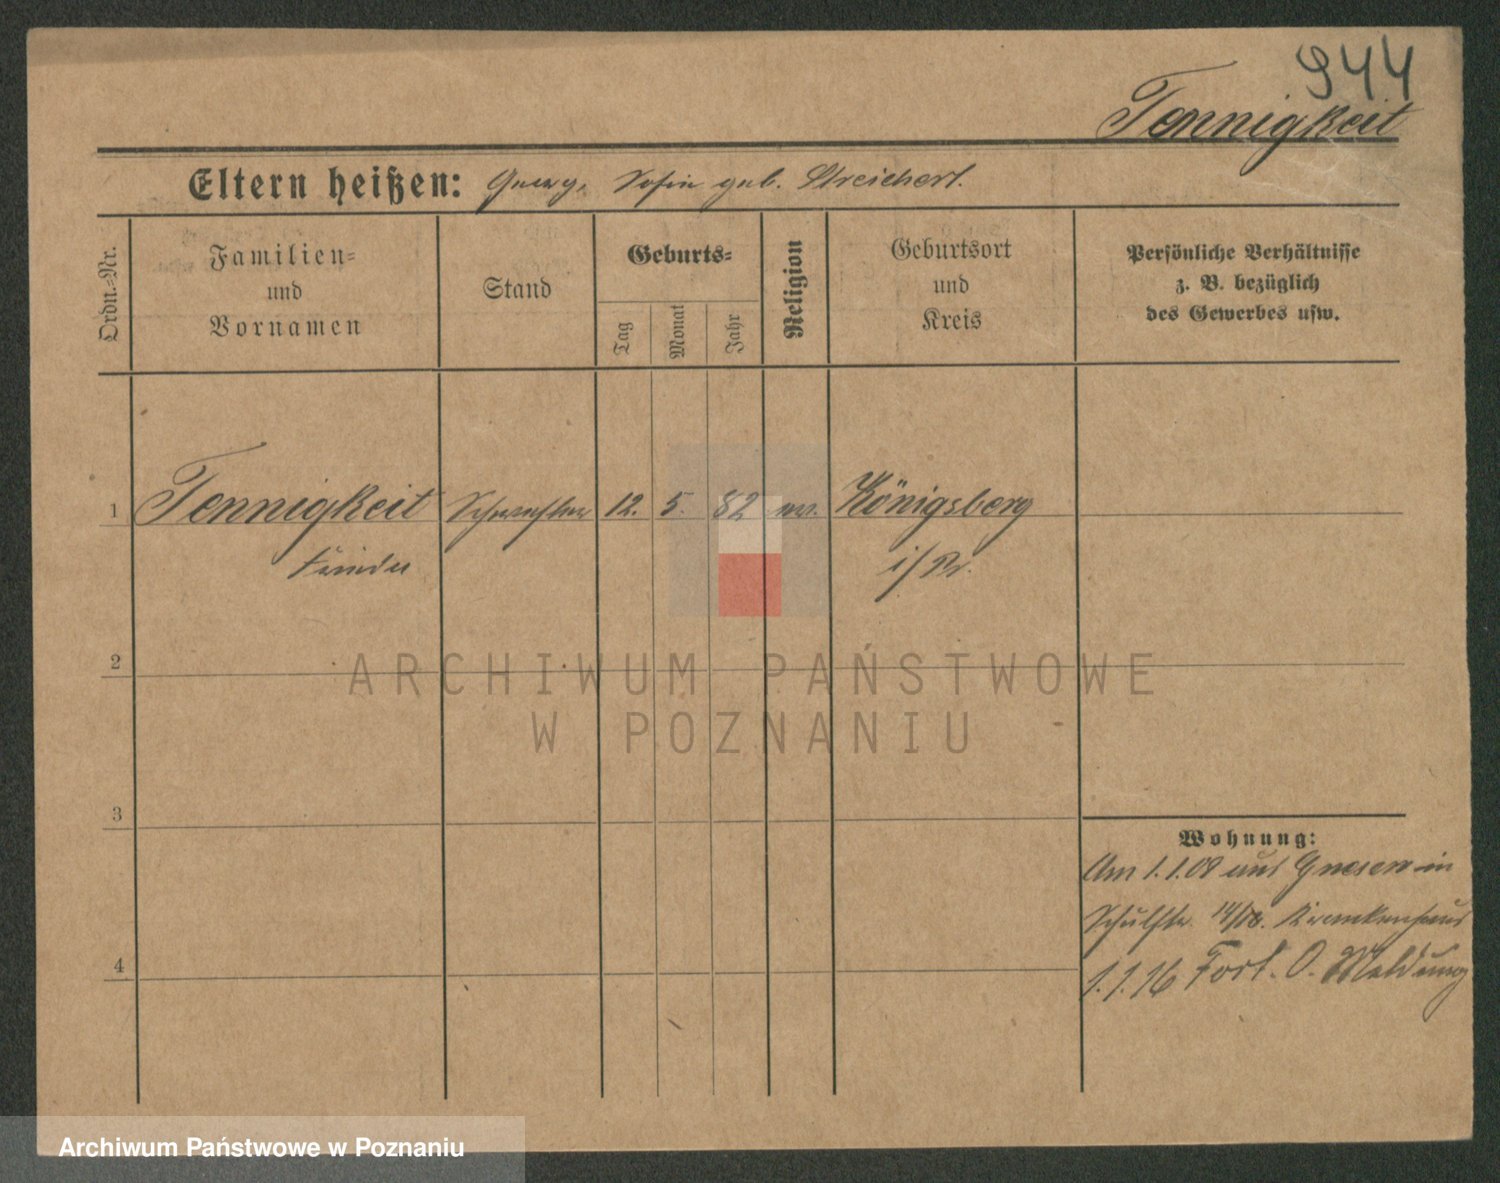 944
Tennigkeit
Eltern heißen: Georg, Sofie geb. Streichert.
Ordn.-Nr.
Familien- und Vornamen
Stand
Geburts-
Tag
Monat
Jahr
Religion
Geburtsort und Kreis
Persönliche Verhältnisse z. B. bezüglich des Gewerbes usw.
1 Tennigkeit Schwester 12. 5. 82 ev. Königsberg
i/Pr.
2
ARCHIWUM PAŃSTWOWE
W POZNANIU
3
Wohnung:
Am 1.1.08 aus Gnesen in
Schulstr. 14/18. Krankenhaus
4
1.1.16 Fort. O. Meldung
Archiwum Państwowe w Poznaniu